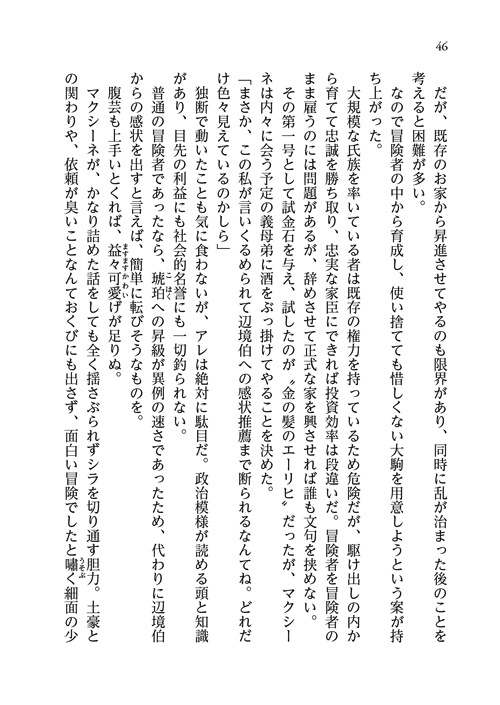 46
だが、既存のお家から昇進させてやるのも限界があり、同時に乱が治まった後のことを
考えると困難が多い。
なので冒険者の中から育成し、使い捨てても惜しくない大駒を用意しようという案が持
ち上がった。
大規模な氏族を率いている者は既存の権力を持っているため危険だが、駆け出しの内か
ら育てて忠誠を勝ち取り、忠実な家臣にできれば投資効率は段違いだ。冒険者を冒険者の
まま雇うのには問題があるが、辞めさせて正式な家を興させれば誰も文句を挟めない。
その第一号として試金石を与え、試したのが〝金の髪のエーリヒ〟だったが、マクシー
ネは内々に会う予定の義母弟に酒をぶっ掛けてやることを決めた。
「まさか、この私が言いくるめられて辺境伯への感状推薦まで断られるなんてね。どれだ
け色々見えているのかしら」
独断で動いたことも気に食わないが、アレは絶対に駄目だ。政治模様が読める頭と知識
があり、目先の利益にも社会的名誉にも一切釣られない。
普通の冒険者であったなら、琥珀への昇級が異例の速さであったため、代わりに辺境伯
からの感状を出すと言えば、簡単に転びそうなものを。
腹芸も上手いとくれば、益々可愛げが足りぬ。
マクシーネが、かなり詰めた話をしても全く揺さぶられずシラを切り通す胆力。土豪と
の関わりや、依頼が臭いことなんておくびにも出さず、面白い冒険でしたと嘯く細面の少